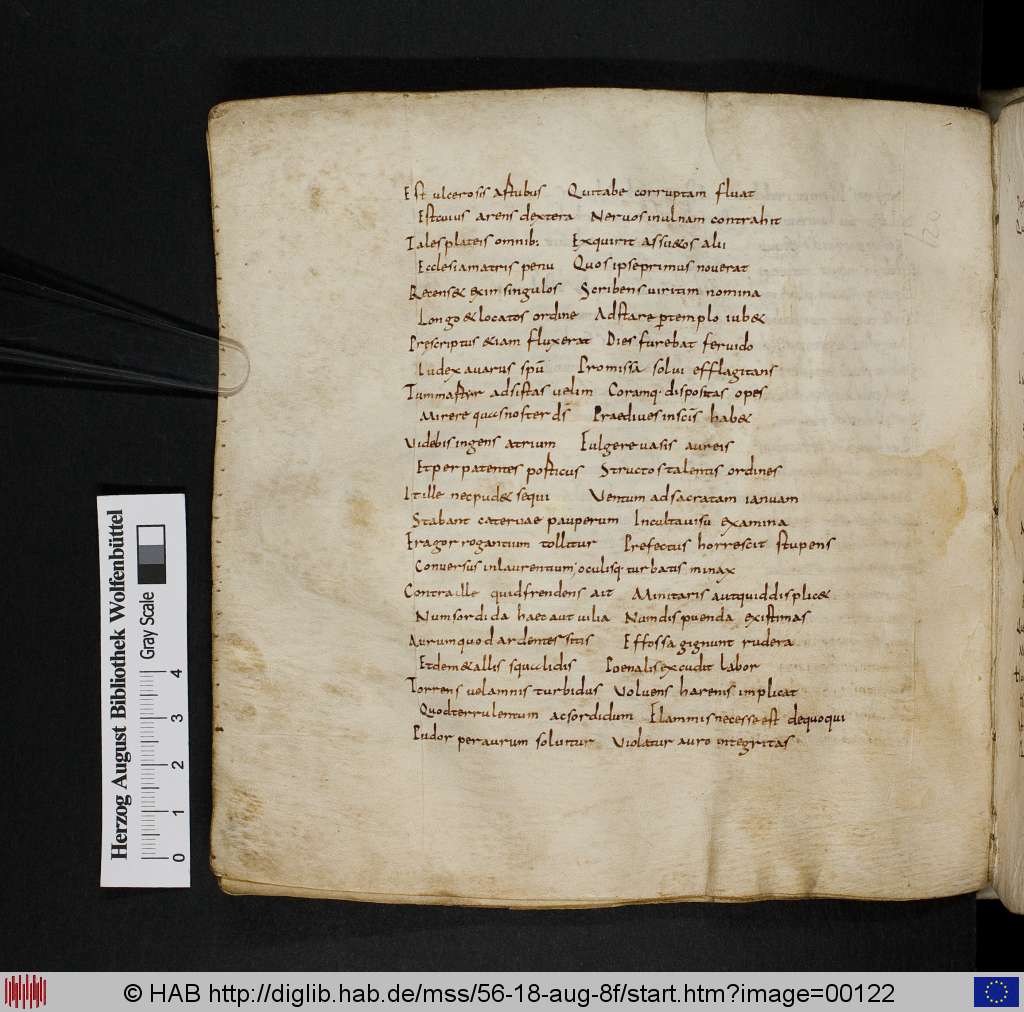 Est ulcerosis artubus Qui tabe corruptam fluat
Est cuius arens dextera Nervos in ulnam contrahit
Tales plateis omnib; Exquirit assu&os ali
Ecclesiae matris penu Quos ipse primus noverat
Recens& exin singulos Scribens viritim nomina
Longo & locatos ordine Adstare p templo iub&
Prescriptus & iam fluxerat Dies furebat fervido
Iudex avarus spū Promissa solvi efflagitans
Tum martyr adsistas velim Coramq· dispositas opes
Mirere quas noster dš Praedives in scīs hab&
Videbis ingens atrium Fulgere vasis aureis
Et per patentes porticus Structos talentis ordines
It ille nec pud& sequi Ventum ad sacratam ianuam
Stabant catervae pauperum Inculta visu examina
Fragor rogantium tollitur Prefectus horrescit stupens
Conversus in laurentium oculisq· turbatis minax
Contra ille quid frendens ait Minitaris aut quid displic&
Num sordida haec aut vilia Num dispuenda existimas
Aurum quod ardentes sitis Effossa gignunt rudera
Et de m&allis squalidis Poenalis excudit labor
Torrens vel amnis turbidus Volvens harenis implicat
Quod terrulentum ac sordidum Flammis necesse est dequoqui
Pudor per aurum solvitur Violatur auro integritas
120
Herzog August Bibliothek Wolfenbüttel
Gray Scale
0 1 2 3 4
© HAB http://diglib.hab.de/mss/56-18-aug-8f/start.htm?image=00122